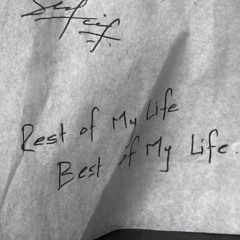 Rest of My Life
Best of My Life.